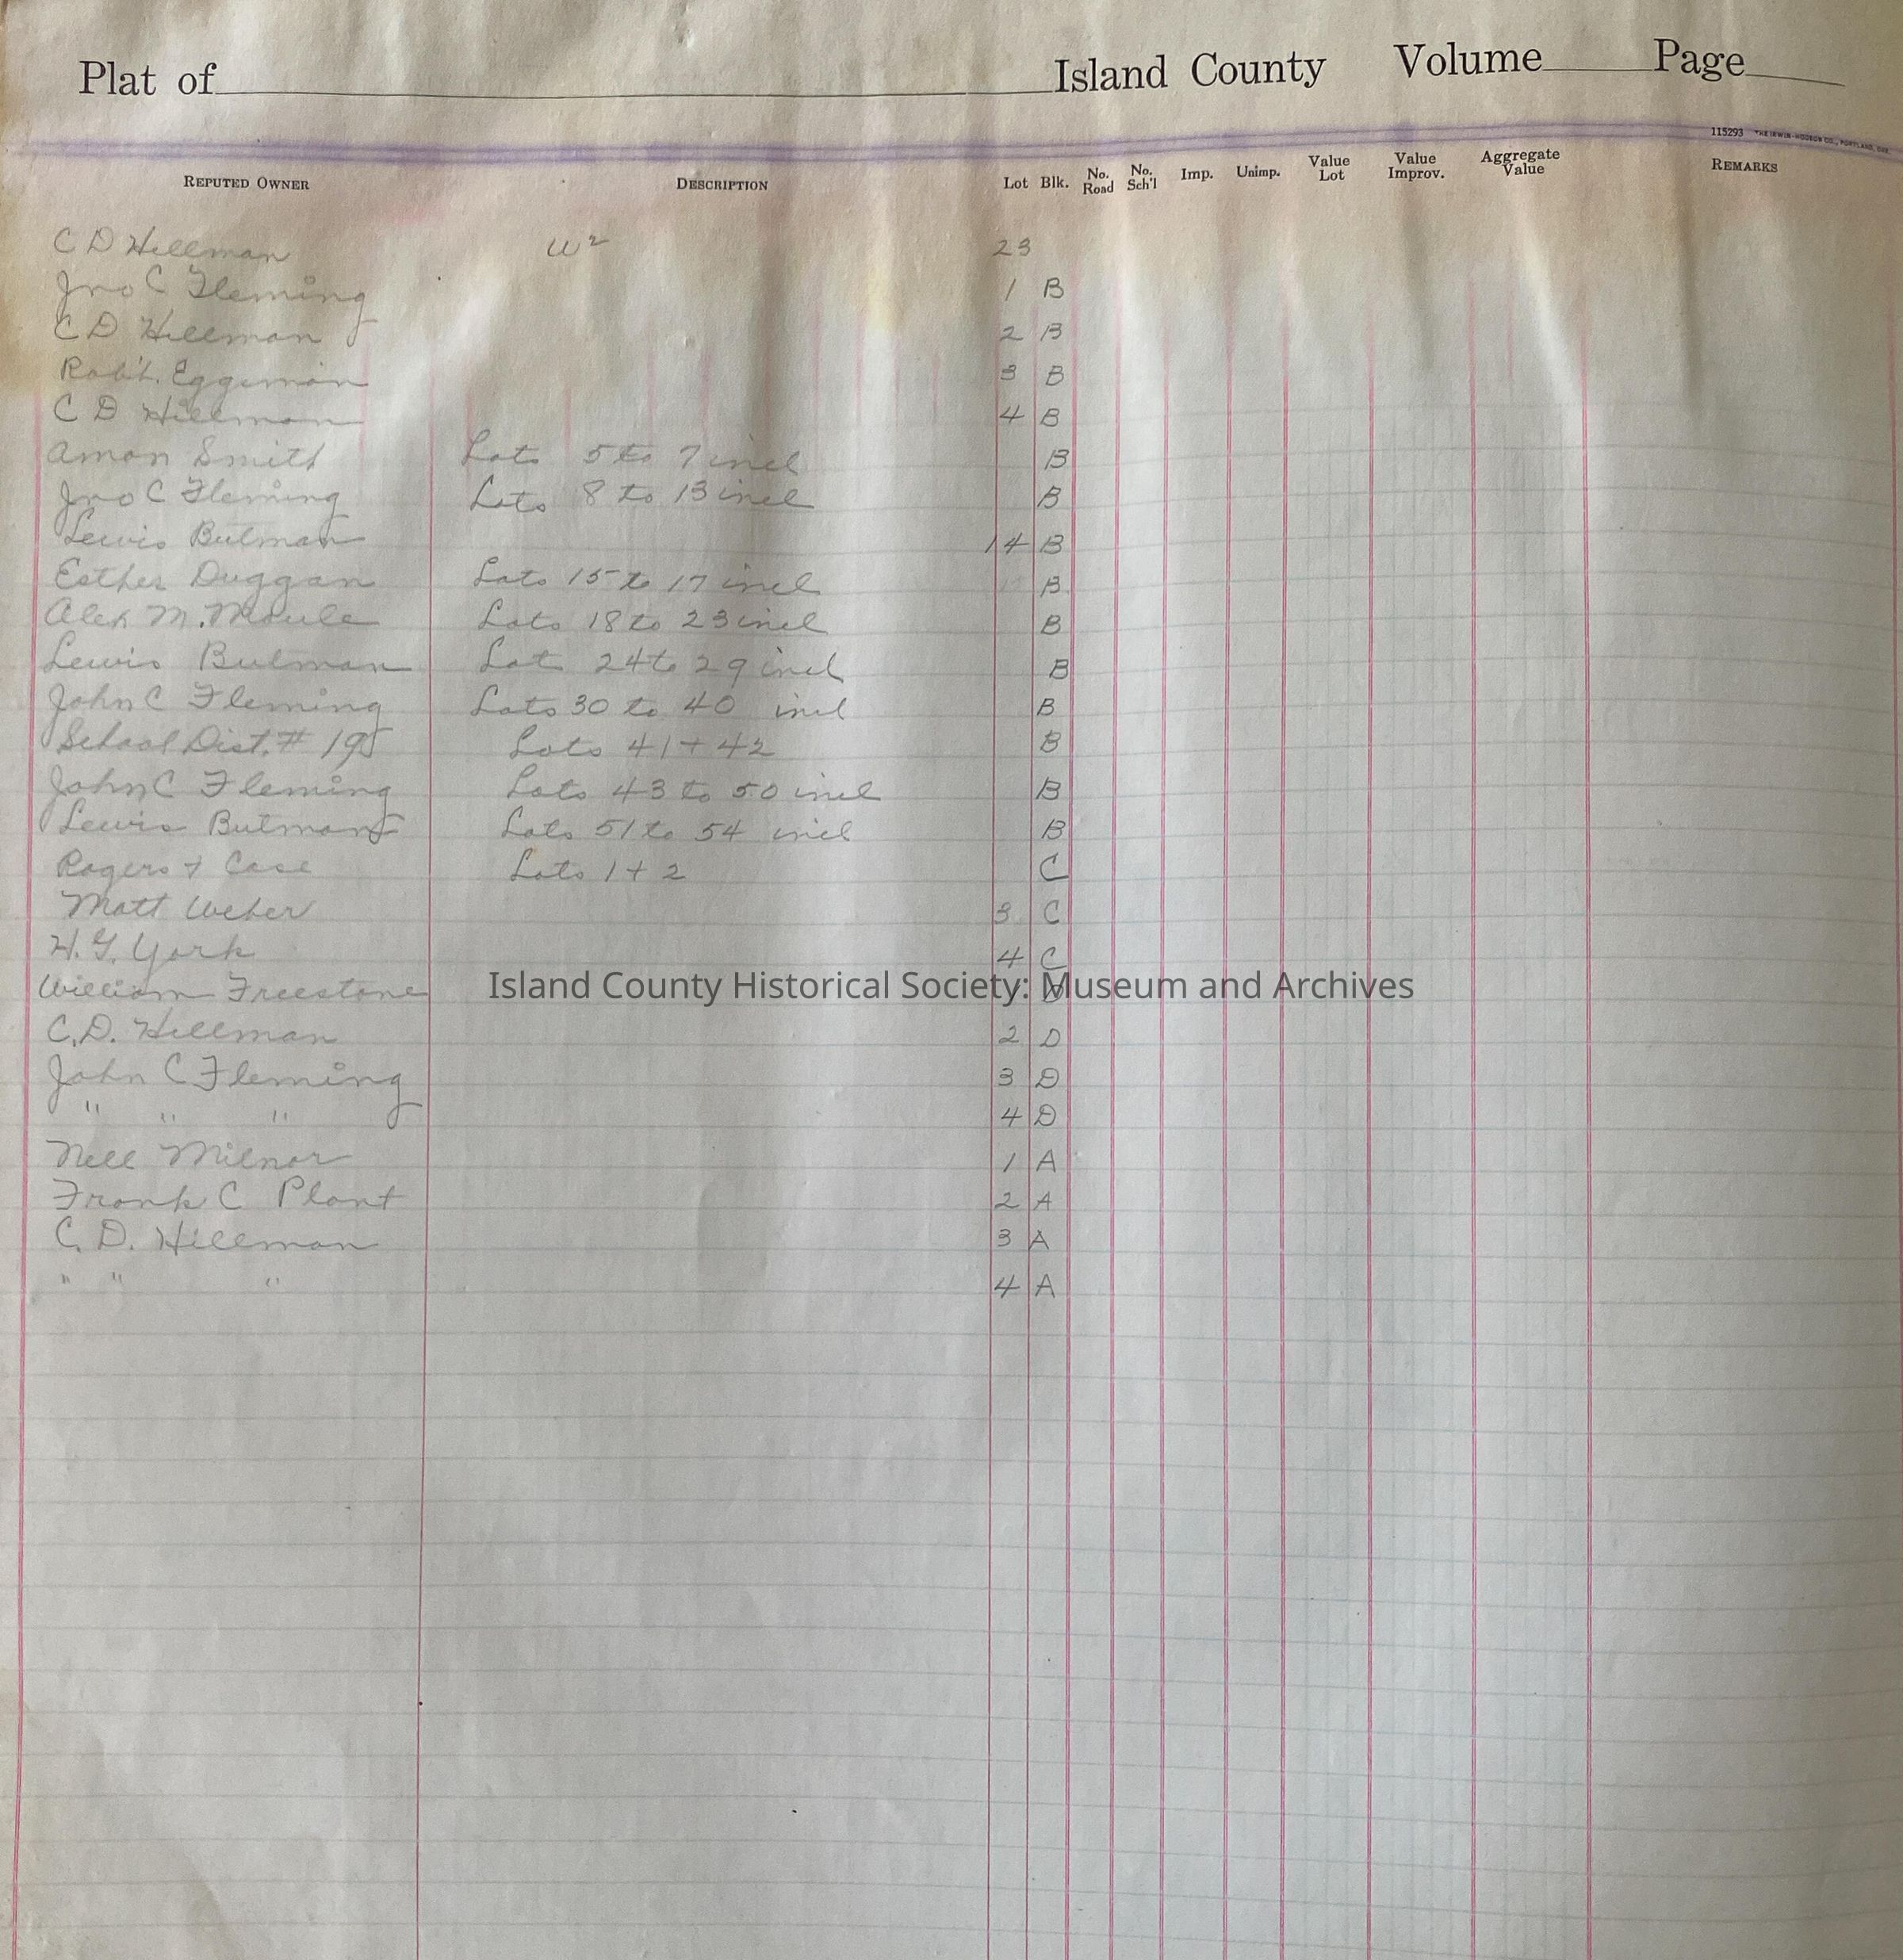 Plat of Island County Volume Page
115293 THE IRWIN-HODSON CO., PORTLAND, ORE.
REPUTED OWNER DESCRIPTION Lot Blk. No. Road No. Sch'l Imp. Unimp. Value Lot Value Improv. Aggregate Value REMARKS
C D Hillman W² 23
Jno C Fleming 1 B
C D Hillman 2 B
Rob't. Eggiman 3 B
C D Hillman 4 B
Amon Smith Lots 5 to 7 incl B
Jno C Fleming Lots 8 to 13 incl B
Lewis Bulman 14 B
Esther Duggan Lots 15 to 17 incl B
Alex M. Moule Lots 18 to 23 incl B
Lewis Bulman Lots 24 to 29 incl B
John C Fleming Lots 30 to 40 incl B
School Dist. # 195 Lots 41 + 42 B
John C Fleming Lots 43 to 50 incl B
Lewis Bulman Lots 51 to 54 incl B
Rogers + Case Lots 1 + 2 C
Matt Weber 3 C
H. G. York 4 C
William Freestone 1 D
Island County Historical Society: Museum and Archives
C. D. Hillman 2 D
John C Fleming 3 D
" " " 4 D
Nell Milnor 1 A
Frank C Plant 2 A
C. D. Hillman 3 A
" " " 4 A